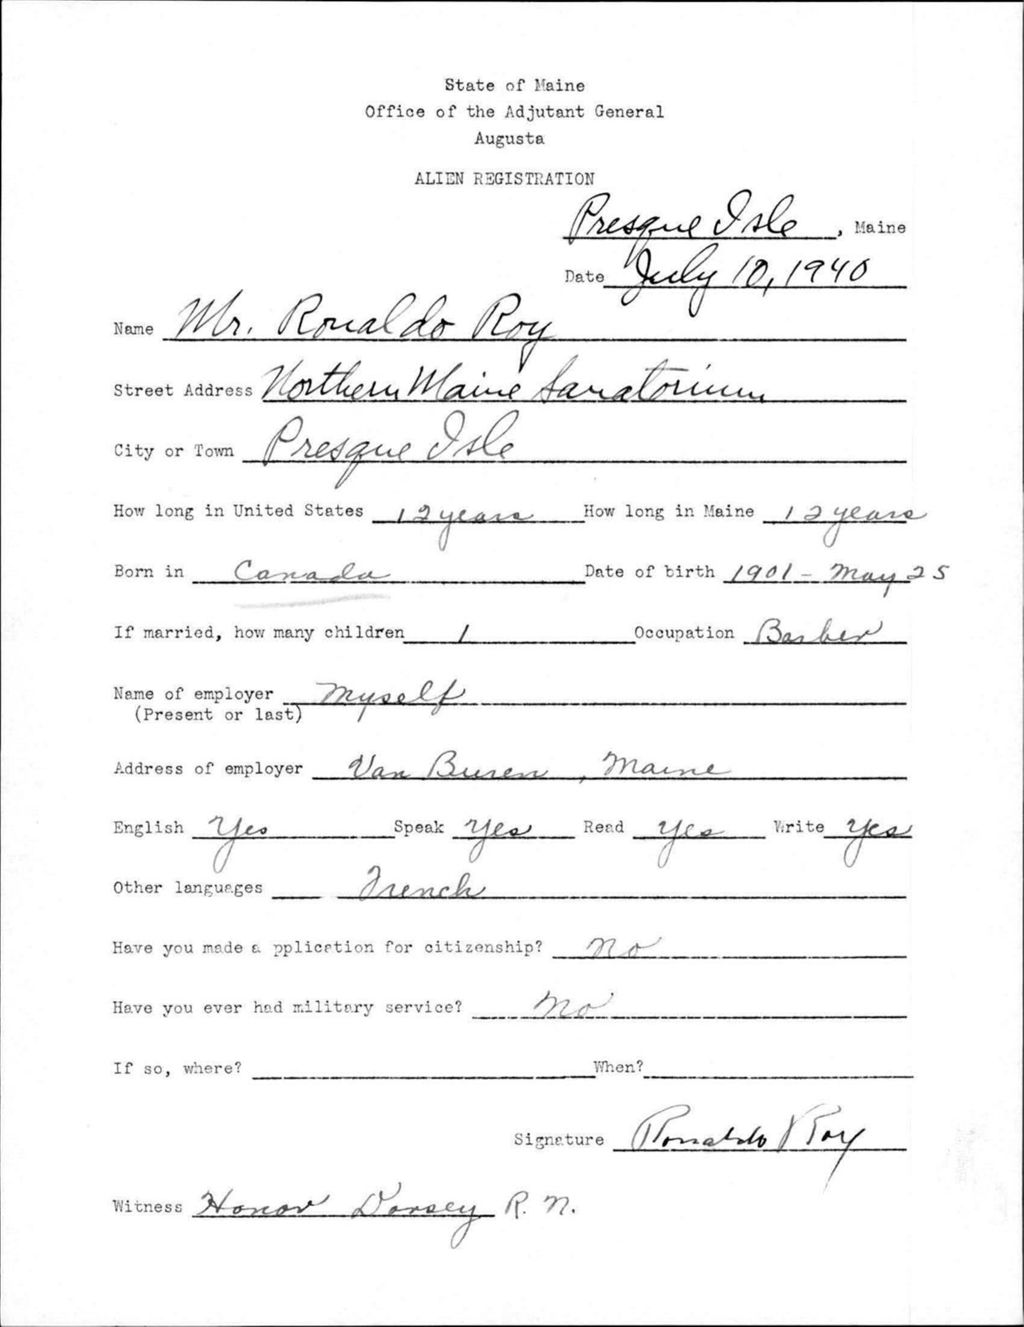 State of Maine
Office of the Adjutant General
Augusta
ALIEN REGISTRATION
Presque Isle, Maine
Date July 10, 1940
Name Mr. Ronaldo Roy
Street Address Northern Maine Sanatorium
City or Town Presque Isle
How long in United States 12 years How long in Maine 12 years
Born in Canada Date of birth 1901 - May 25
If married, how many children 1 Occupation Barber
Name of employer Myself
(Present or last)
Address of employer Van Buren, Maine
English Yes Speak Yes Read Yes Write Yes
Other languages French
Have you made a pplication for citizenship? No
Have you ever had military service? No
If so, where? When?
Signature Ronaldo Roy
Witness Honor Dorsey R. N.